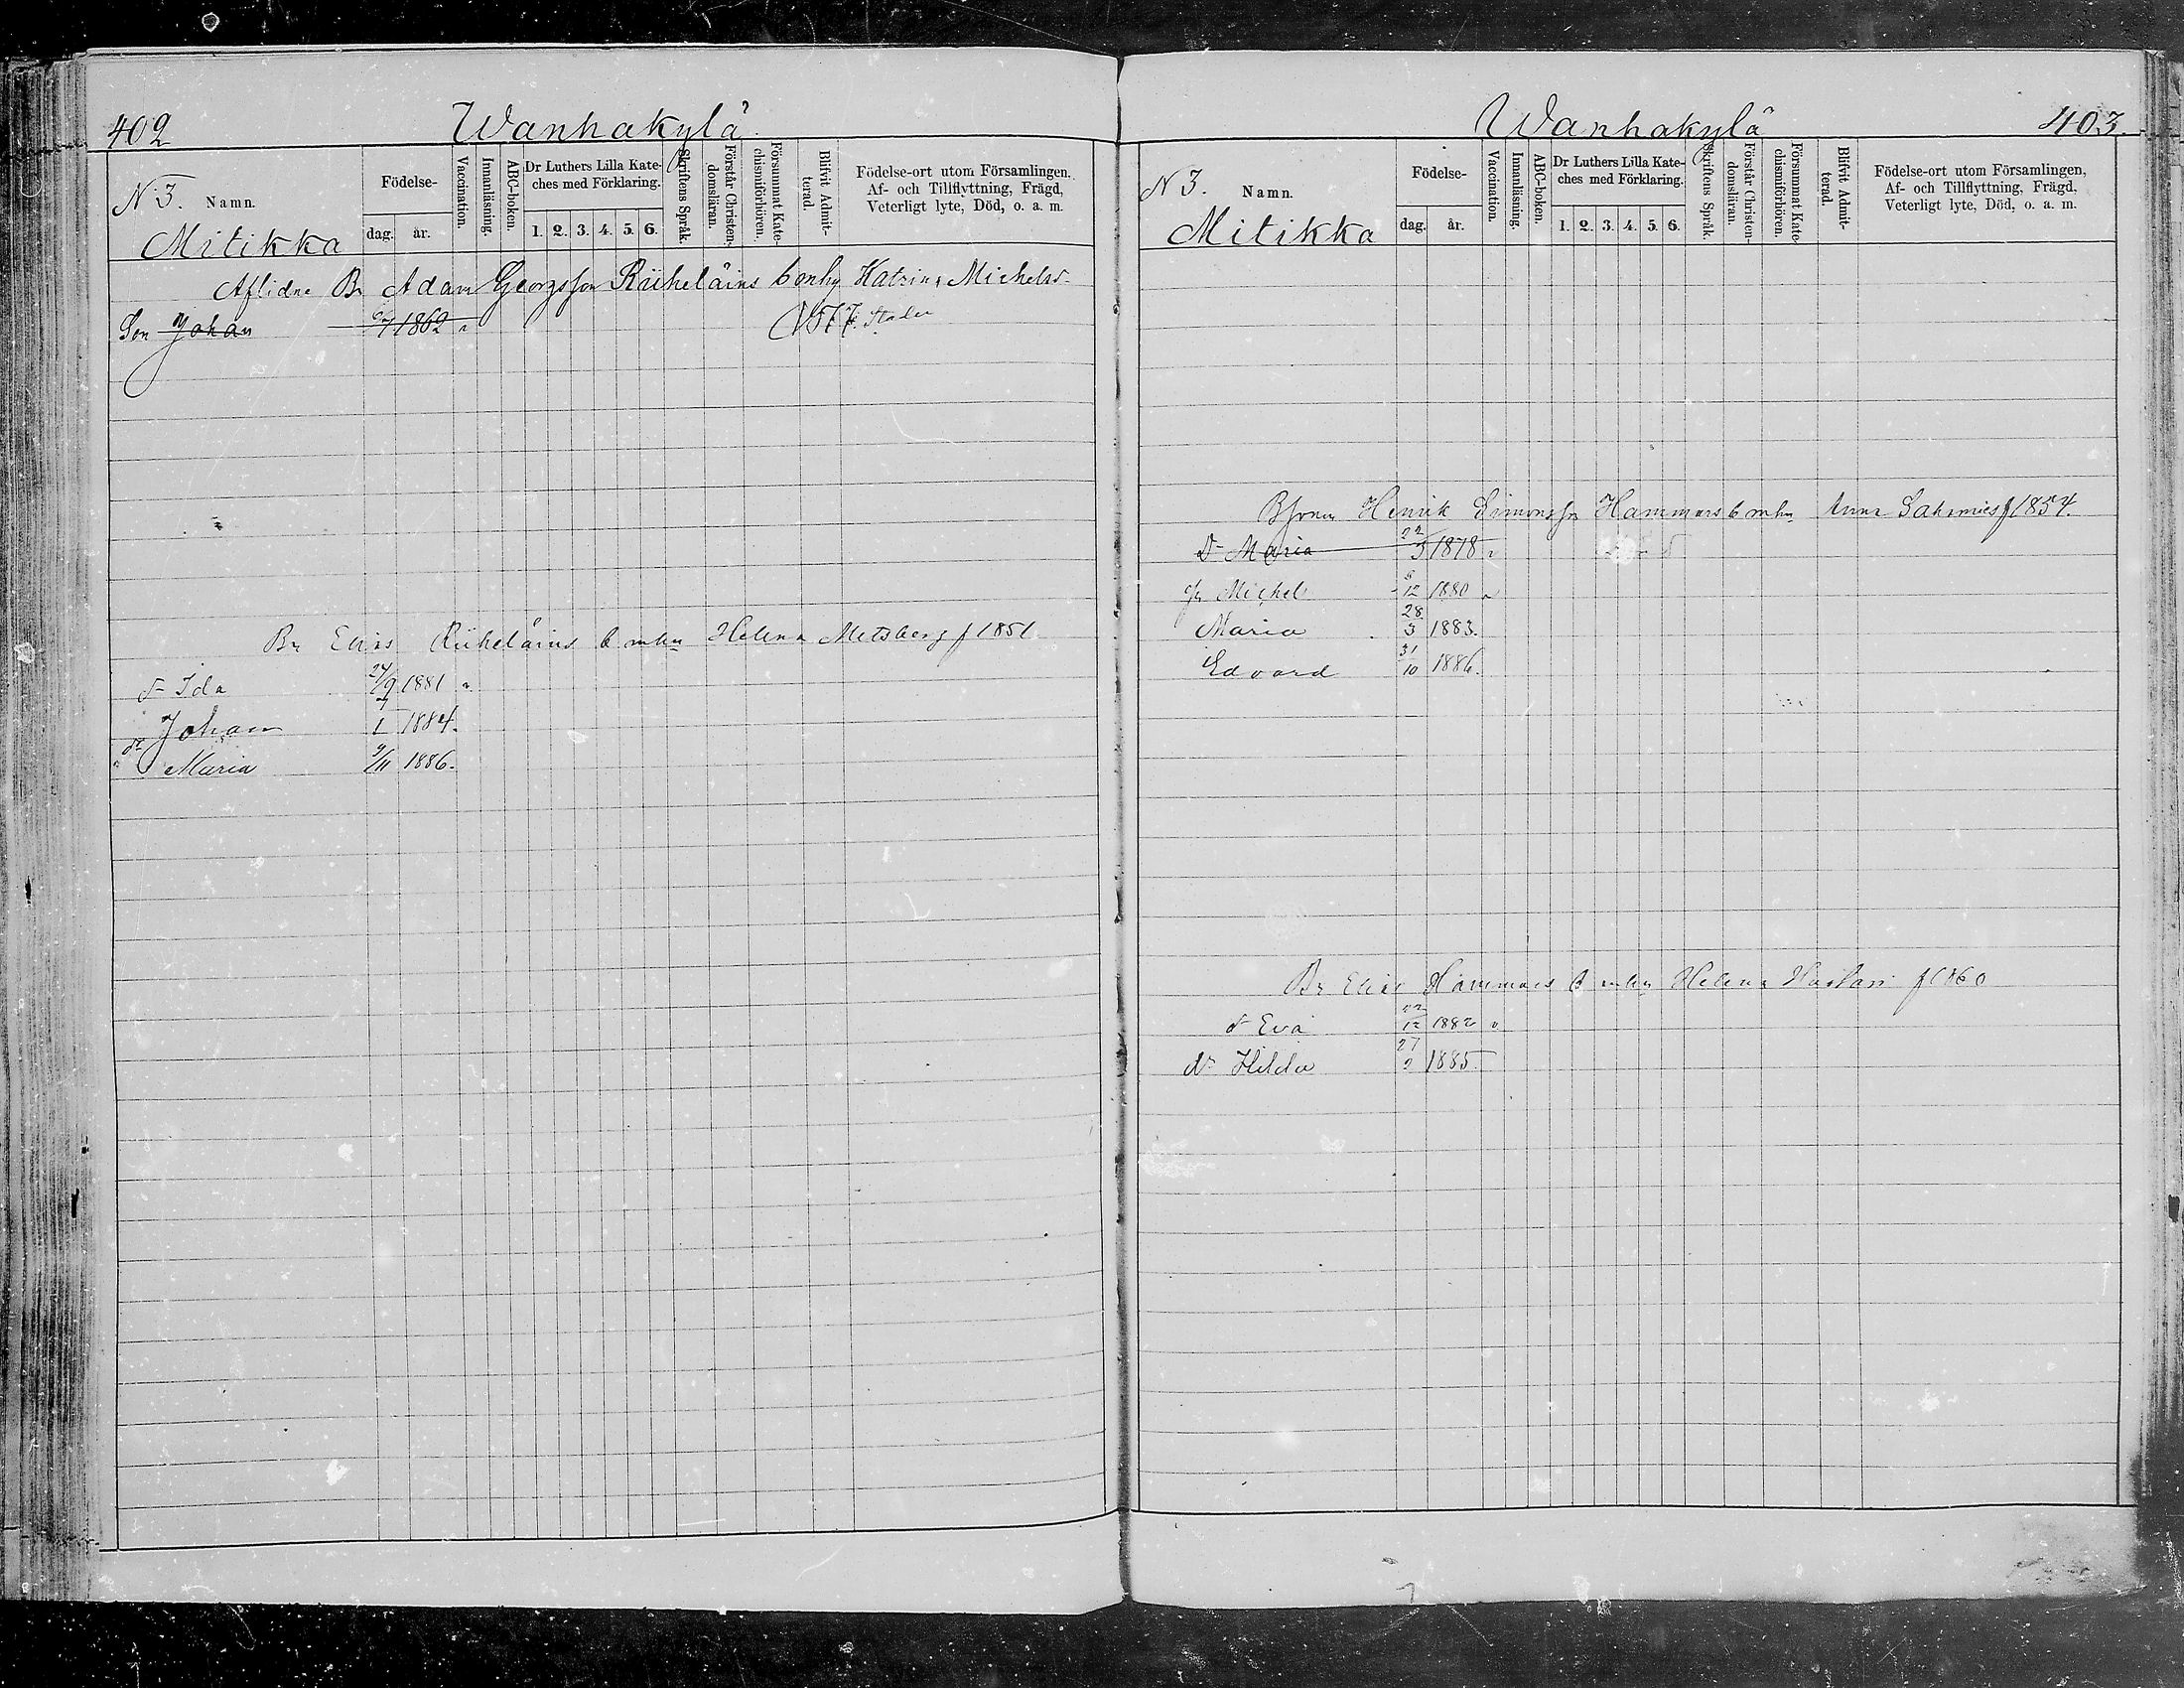 402
Wanhakylä
N 3. Namn.
Födelse-
dag. år.
Vaccination.
Innanläsning.
ABC-boken.
Dr Luthers Lilla Kate-
ches med Förklaring.
1. 2. 3. 4. 5. 6.
Skriftens Språk.
Förstår Christen-
domsläran.
Försummat Kate-
chismiförhören.
Blifvit Admit-
terad.
Födelse-ort utom Församlingen,
Af- och Tillflyttning, Frägd,
Veterligt lyte, Död, o. a. m.
Mitikka
Aflidne Bn Adam Georgsson Riiheläins Katrina Michelsdr
Son Johan 1862
Bn Elias Riiheläins Helena Metsberg f 1851
dr Ida 24/9 1881
Johan 1884.
dr Maria 9/11 1886.
Wanhakylä
403.
N 3. Namn.
Födelse-
dag. år.
Vaccination.
Innanläsning.
ABC-boken.
Dr Luthers Lilla Kate-
ches med Förklaring.
1. 2. 3. 4. 5. 6.
Skriftens Språk.
Förstår Christen-
domsläran.
Försummat Kate-
chismiförhören.
Blifvit Admit-
terad.
Födelse-ort utom Församlingen,
Af- och Tillflyttning, Frägd,
Veterligt lyte, Död, o. a. m.
Mitikka
Henrik Simonsson Hammars Anna f 1854.
Dr Maria 22/3 1878
Michel 12 1880
Maria 28/3 1883.
Edvard 31/10 1886.
Bn Elias Hammars Helena f 1860
dr Eva 22/12 1882
dr Hilda 27 1885.